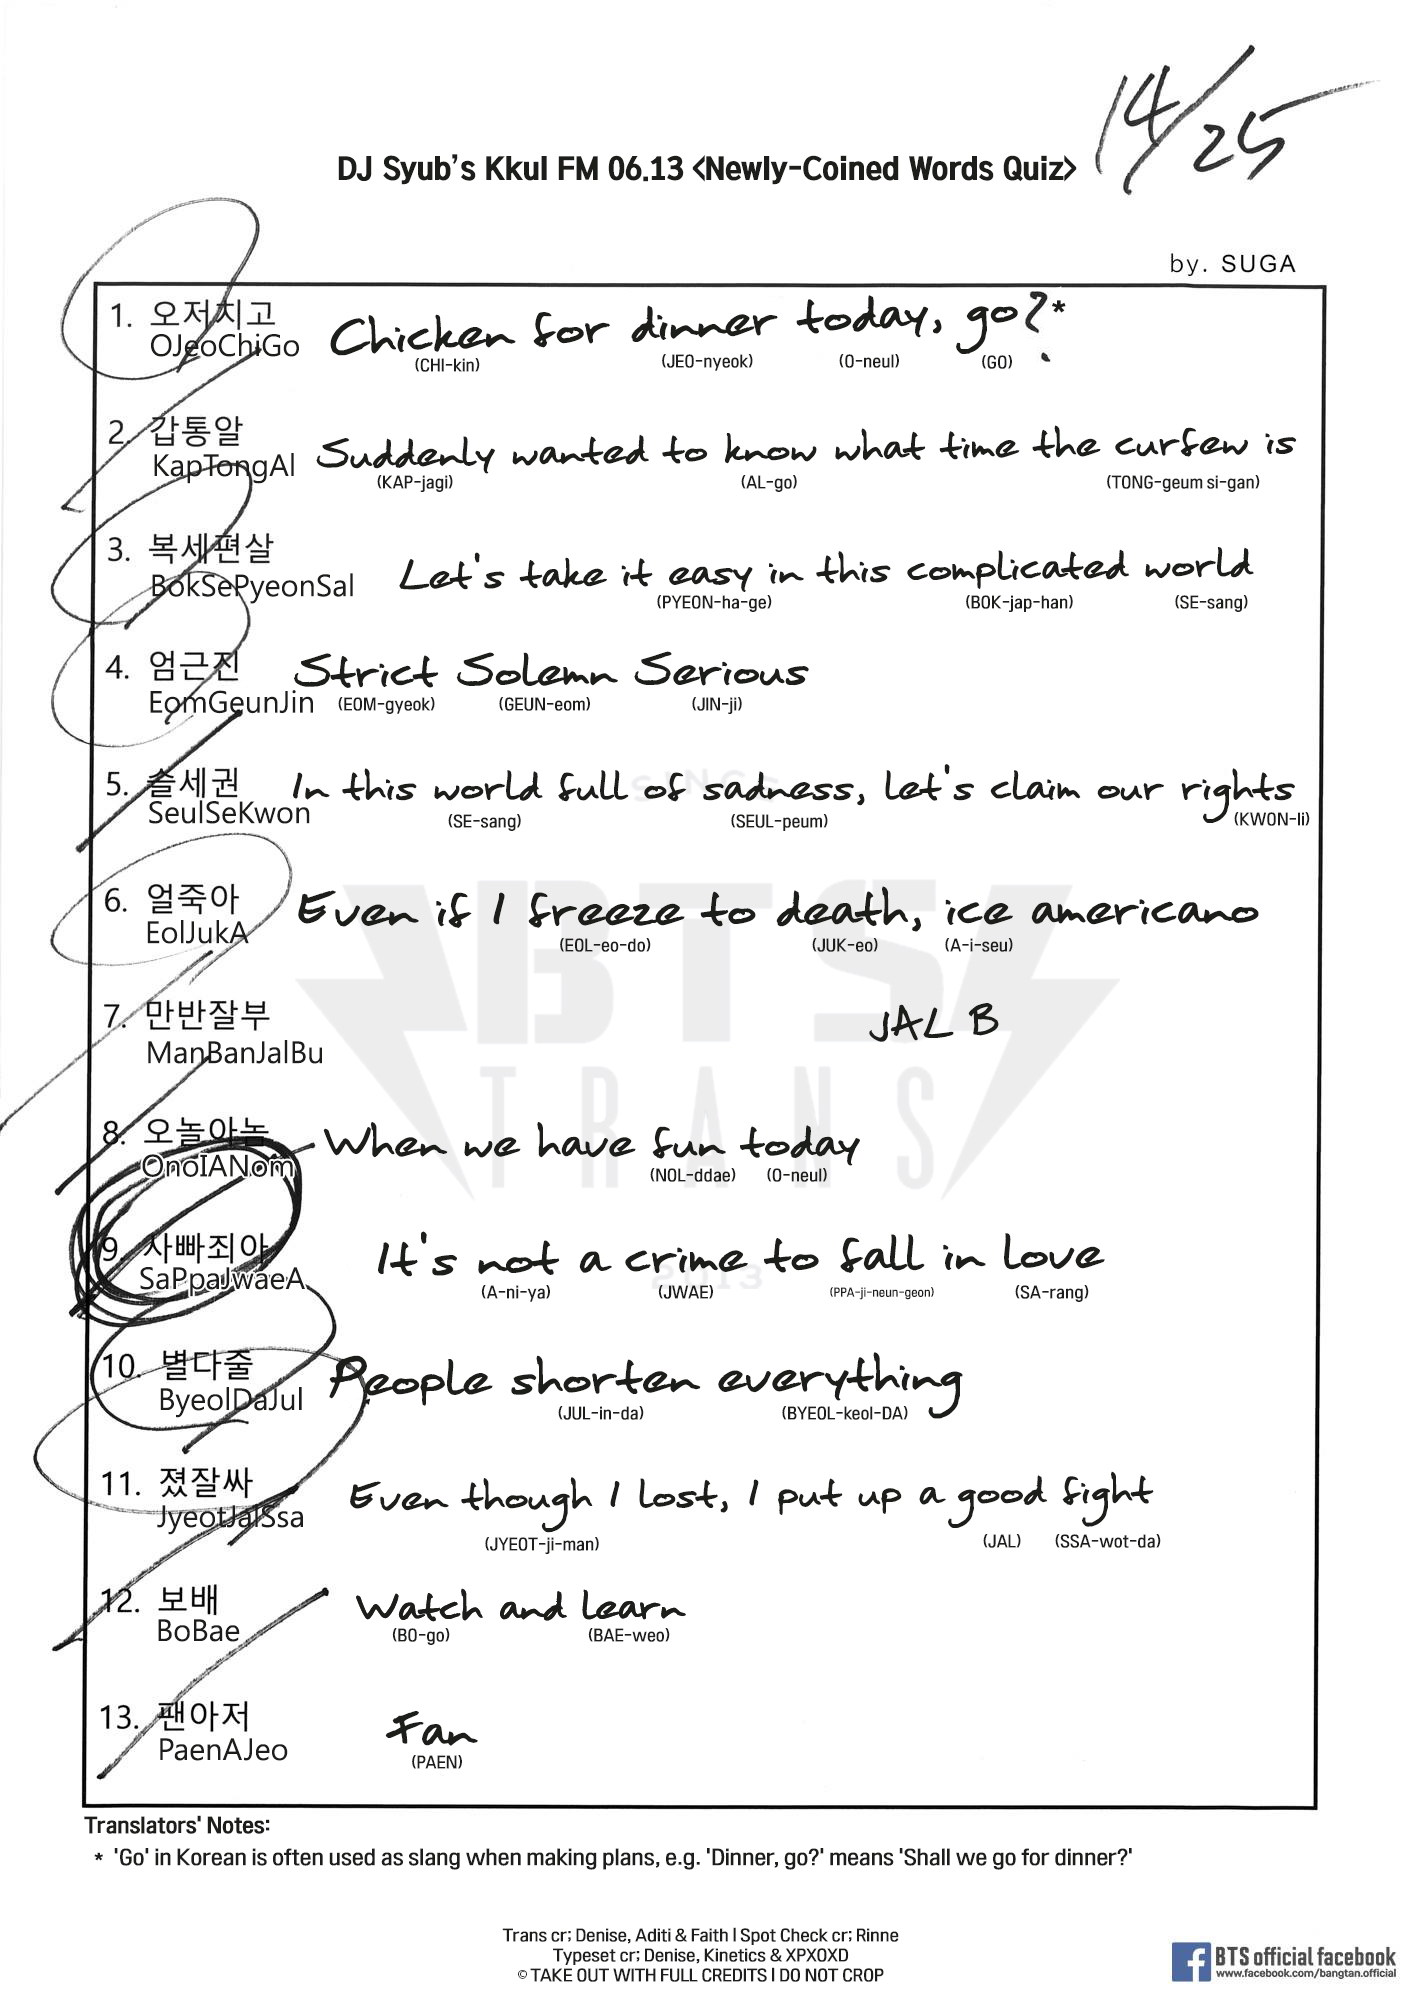 14/25
DJ Syub's Kkul FM 06.13 <Newly-Coined Words Quiz>
by. SUGA
1. 오저치고 Chicken for dinner today, go?*
OJeoChiGo (CHI-kin) (JEO-nyeok) (O-neul) (GO)
2. 갑통알 Suddenly wanted to know what time the curfew is
KapTongAl (KAP-jagi) (AL-go) (TONG-geum si-gan)
3. 복세편살 Let's take it easy in this complicated world
BokSePyeonSal (PYEON-ha-ge) (BOK-jap-han) (SE-sang)
4. 엄근진 Strict Solemn Serious
EomGeunJin (EOM-gyeok) (GEUN-eom) (JIN-ji)
5. 슬세권 In this world full of sadness, let's claim our rights
SeulSeKwon (SE-sang) (SEUL-peum) (KWON-li)
6. 얼죽아 Even if I freeze to death, ice americano
EolJukA (EOL-eo-do) (JUK-eo) (A-i-seu)
7. 만반잘부 JAL B
ManBanJalBu
8. 오놀아놈 When we have fun today
OnolANom (NOL-ddae) (O-neul)
9. 사빠죄아 It's not a crime to fall in love
SaPpaJwaeA (A-ni-ya) (JWAE) (PPA-ji-neun-geon) (SA-rang)
10. 별다줄 People shorten everything
ByeolDaJul (JUL-in-da) (BYEOL-keol-DA)
11. 졌잘싸 Even though I lost, I put up a good fight
JyeotJalSsa (JYEOT-ji-man) (JAL) (SSA-wot-da)
12. 보배 Watch and learn
BoBae (BO-go) (BAE-weo)
13. 팬아저 Fan
PaenAJeo (PAEN)
SINCE
BTS
TRANS
2013
Translators' Notes:
* 'Go' in Korean is often used as slang when making plans, e.g. 'Dinner, go?' means 'Shall we go for dinner?'
Trans cr; Denise, Aditi & Faith | Spot Check cr; Rinne
Typeset cr; Denise, Kinetics & XPXOXD
© TAKE OUT WITH FULL CREDITS I DO NOT CROP
BTS official facebook
www.facebook.com/bangtan.official